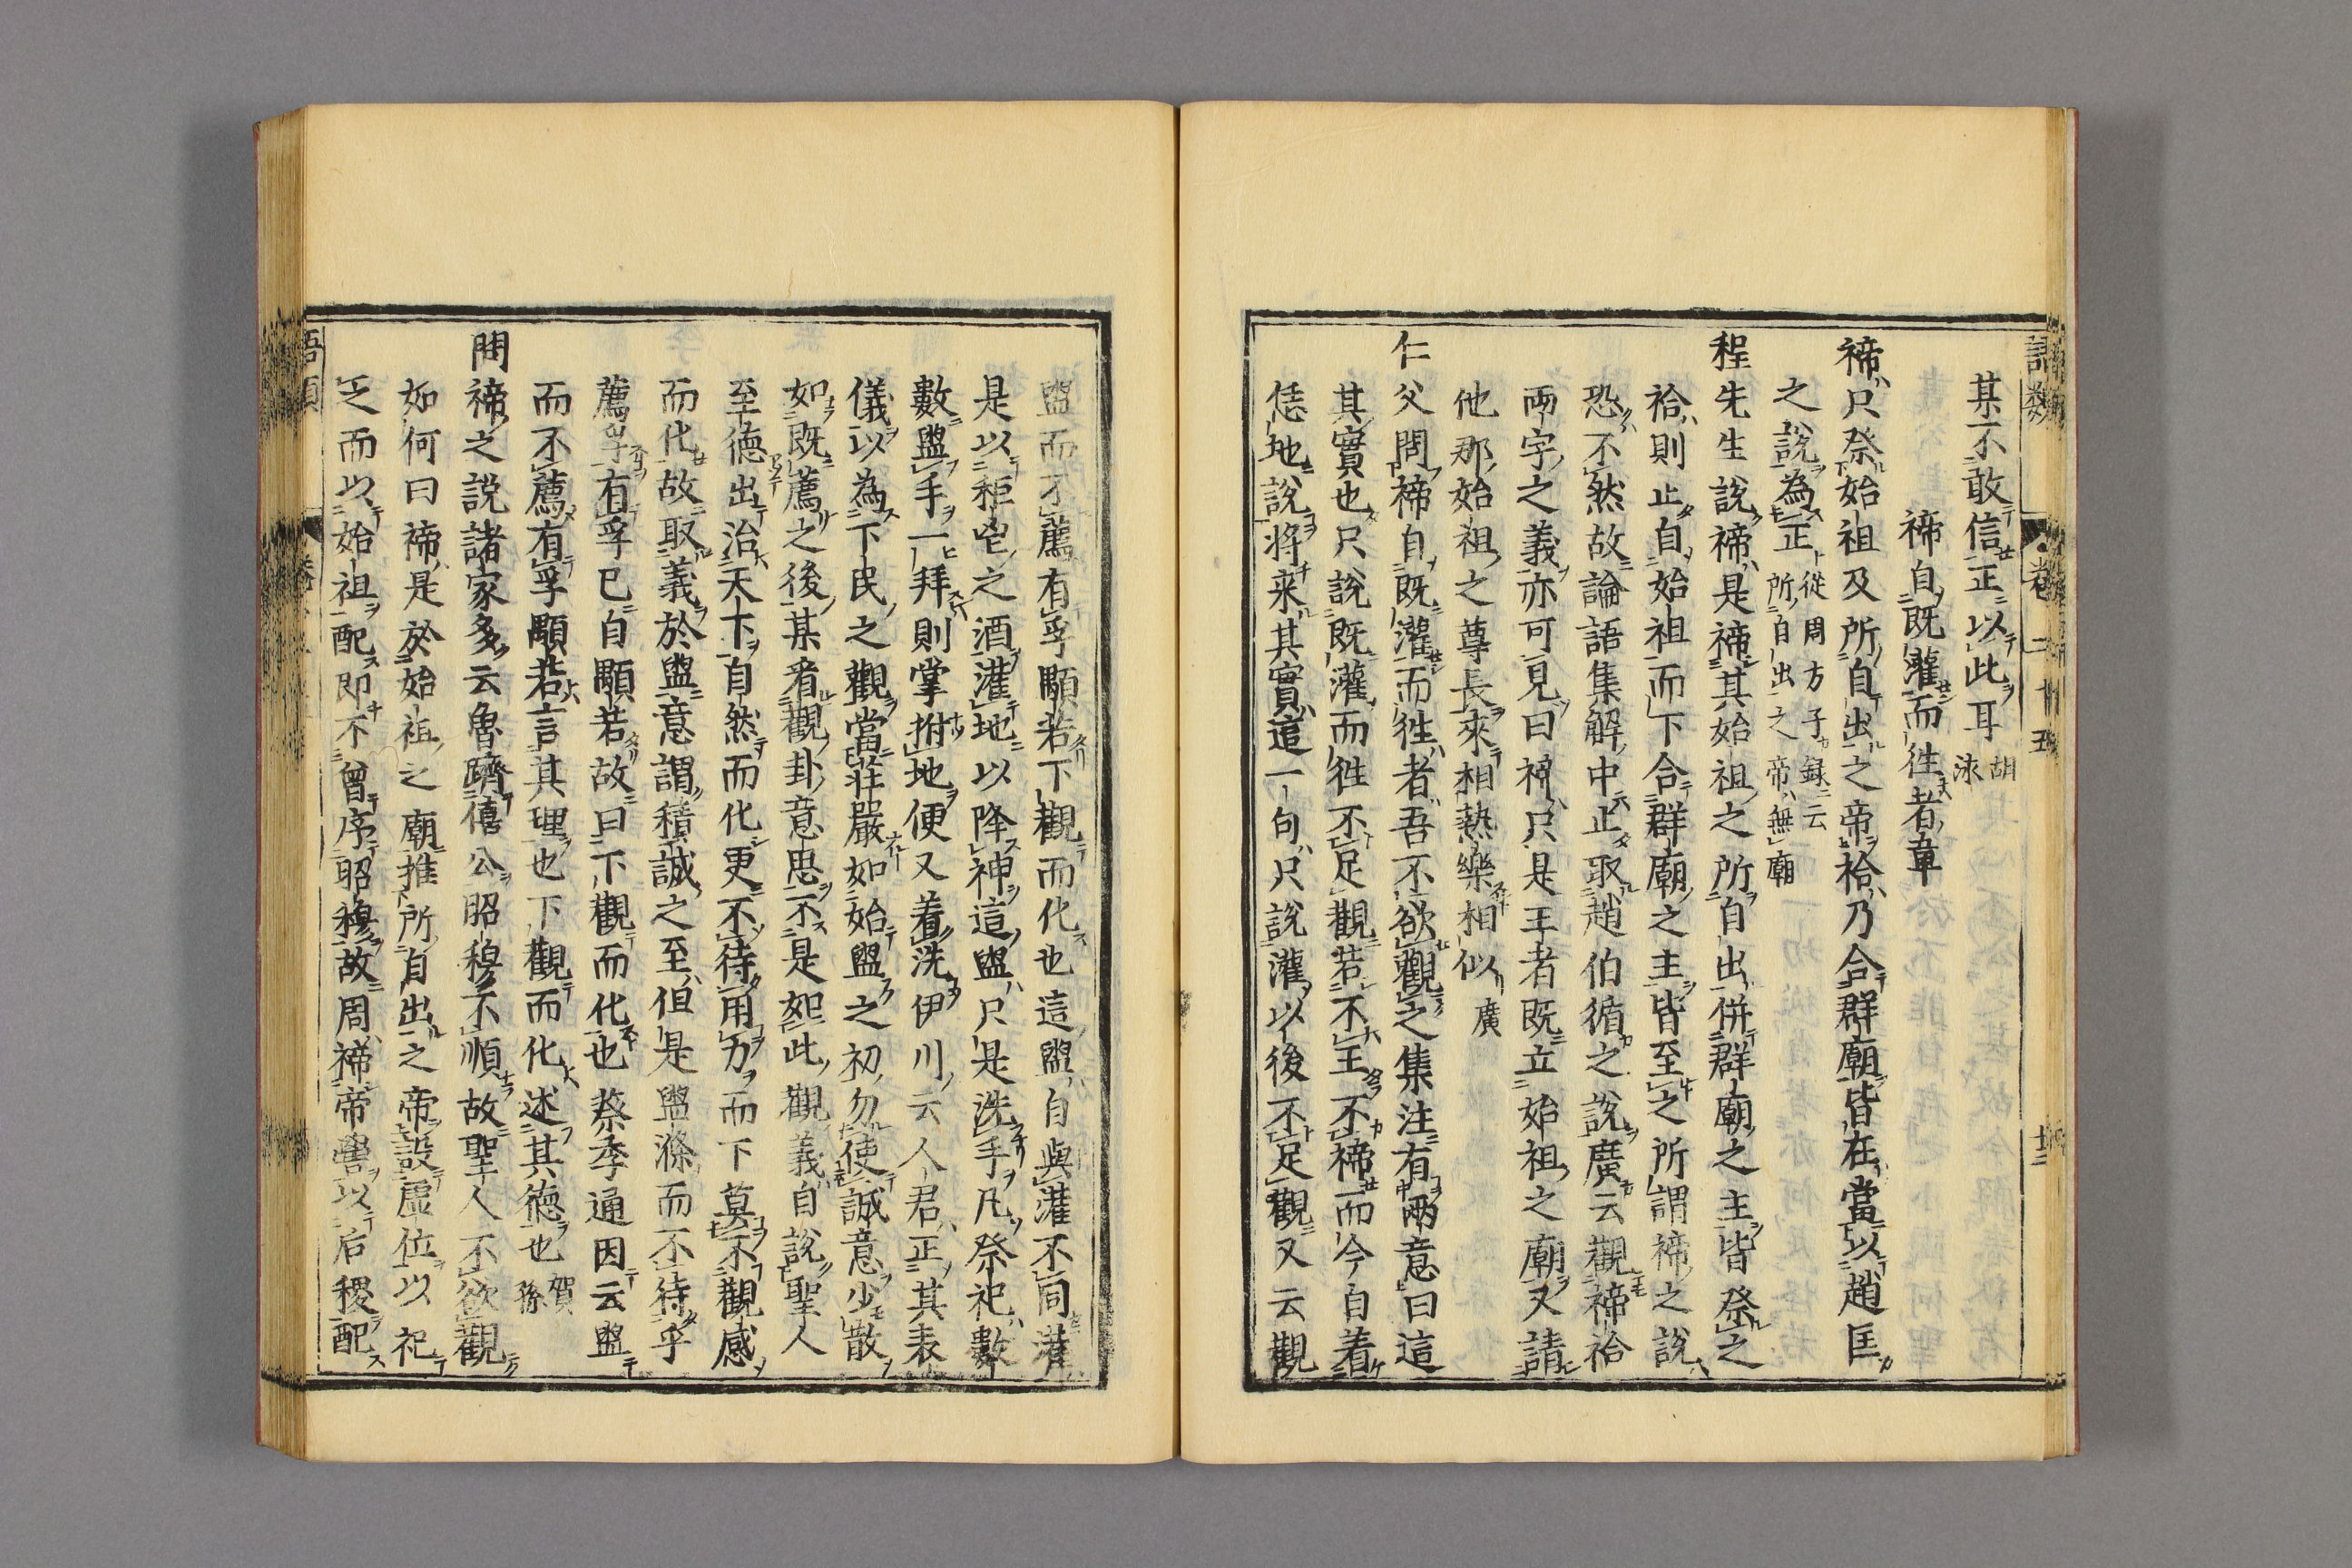 語類 卷二十五 廿二
某不敢信正以此耳胡泳
禘自既灌而徃者章
禘只祭始祖及所自出之帝祫乃合群廟皆在當以趙匡
之說為正從周方子録云所自出之帝無廟
程先生說禘是禘其始祖之所自出併群廟之主皆祭之
祫則止自始祖而下合群廟之主皆至之所謂禘之說
恐不然故論語集解中止取趙伯循之說廣云觀禘祫
兩字之義亦可見曰禘只是王者既立始祖之廟又請
他那始祖之尊長來相熱樂相似廣
仁父問禘自既灌而徃者吾不欲觀之集注有兩意曰這
其實也只說既灌而徃不足觀若不王不禘而今自着
恁地說將来其實這一句只說灌以後不足觀又云觀
盥而不薦有孚顒若下觀而化也這盥自與灌不同灌
是以秬鬯之酒灌地以降神這盥只是洗手凡祭祀數
數盥手一拜則掌拊地便又着洗伊川云人君正其表
儀以為下民之觀當莊嚴如始盥之初勿使誠意少散
如既薦之後某看觀卦意思不是如此觀義自說聖人
至德出治天下自然而化更不待用力而下莫不觀感
而化故取義於盥意謂積誠之至但是盥滌而不待乎
薦享有孚已自顒若故曰下觀而化也蔡季通因云盥
而不薦有孚顒若言其理也下觀而化述其德也賀孫
問禘之說諸家多云魯躋僖公昭穆不順故聖人不欲觀
如何曰禘是於始祖之廟推所自出之帝設虛位以祀
之而以始祖配即不曾序昭穆故周禘帝嚳以后稷配
語類 卷